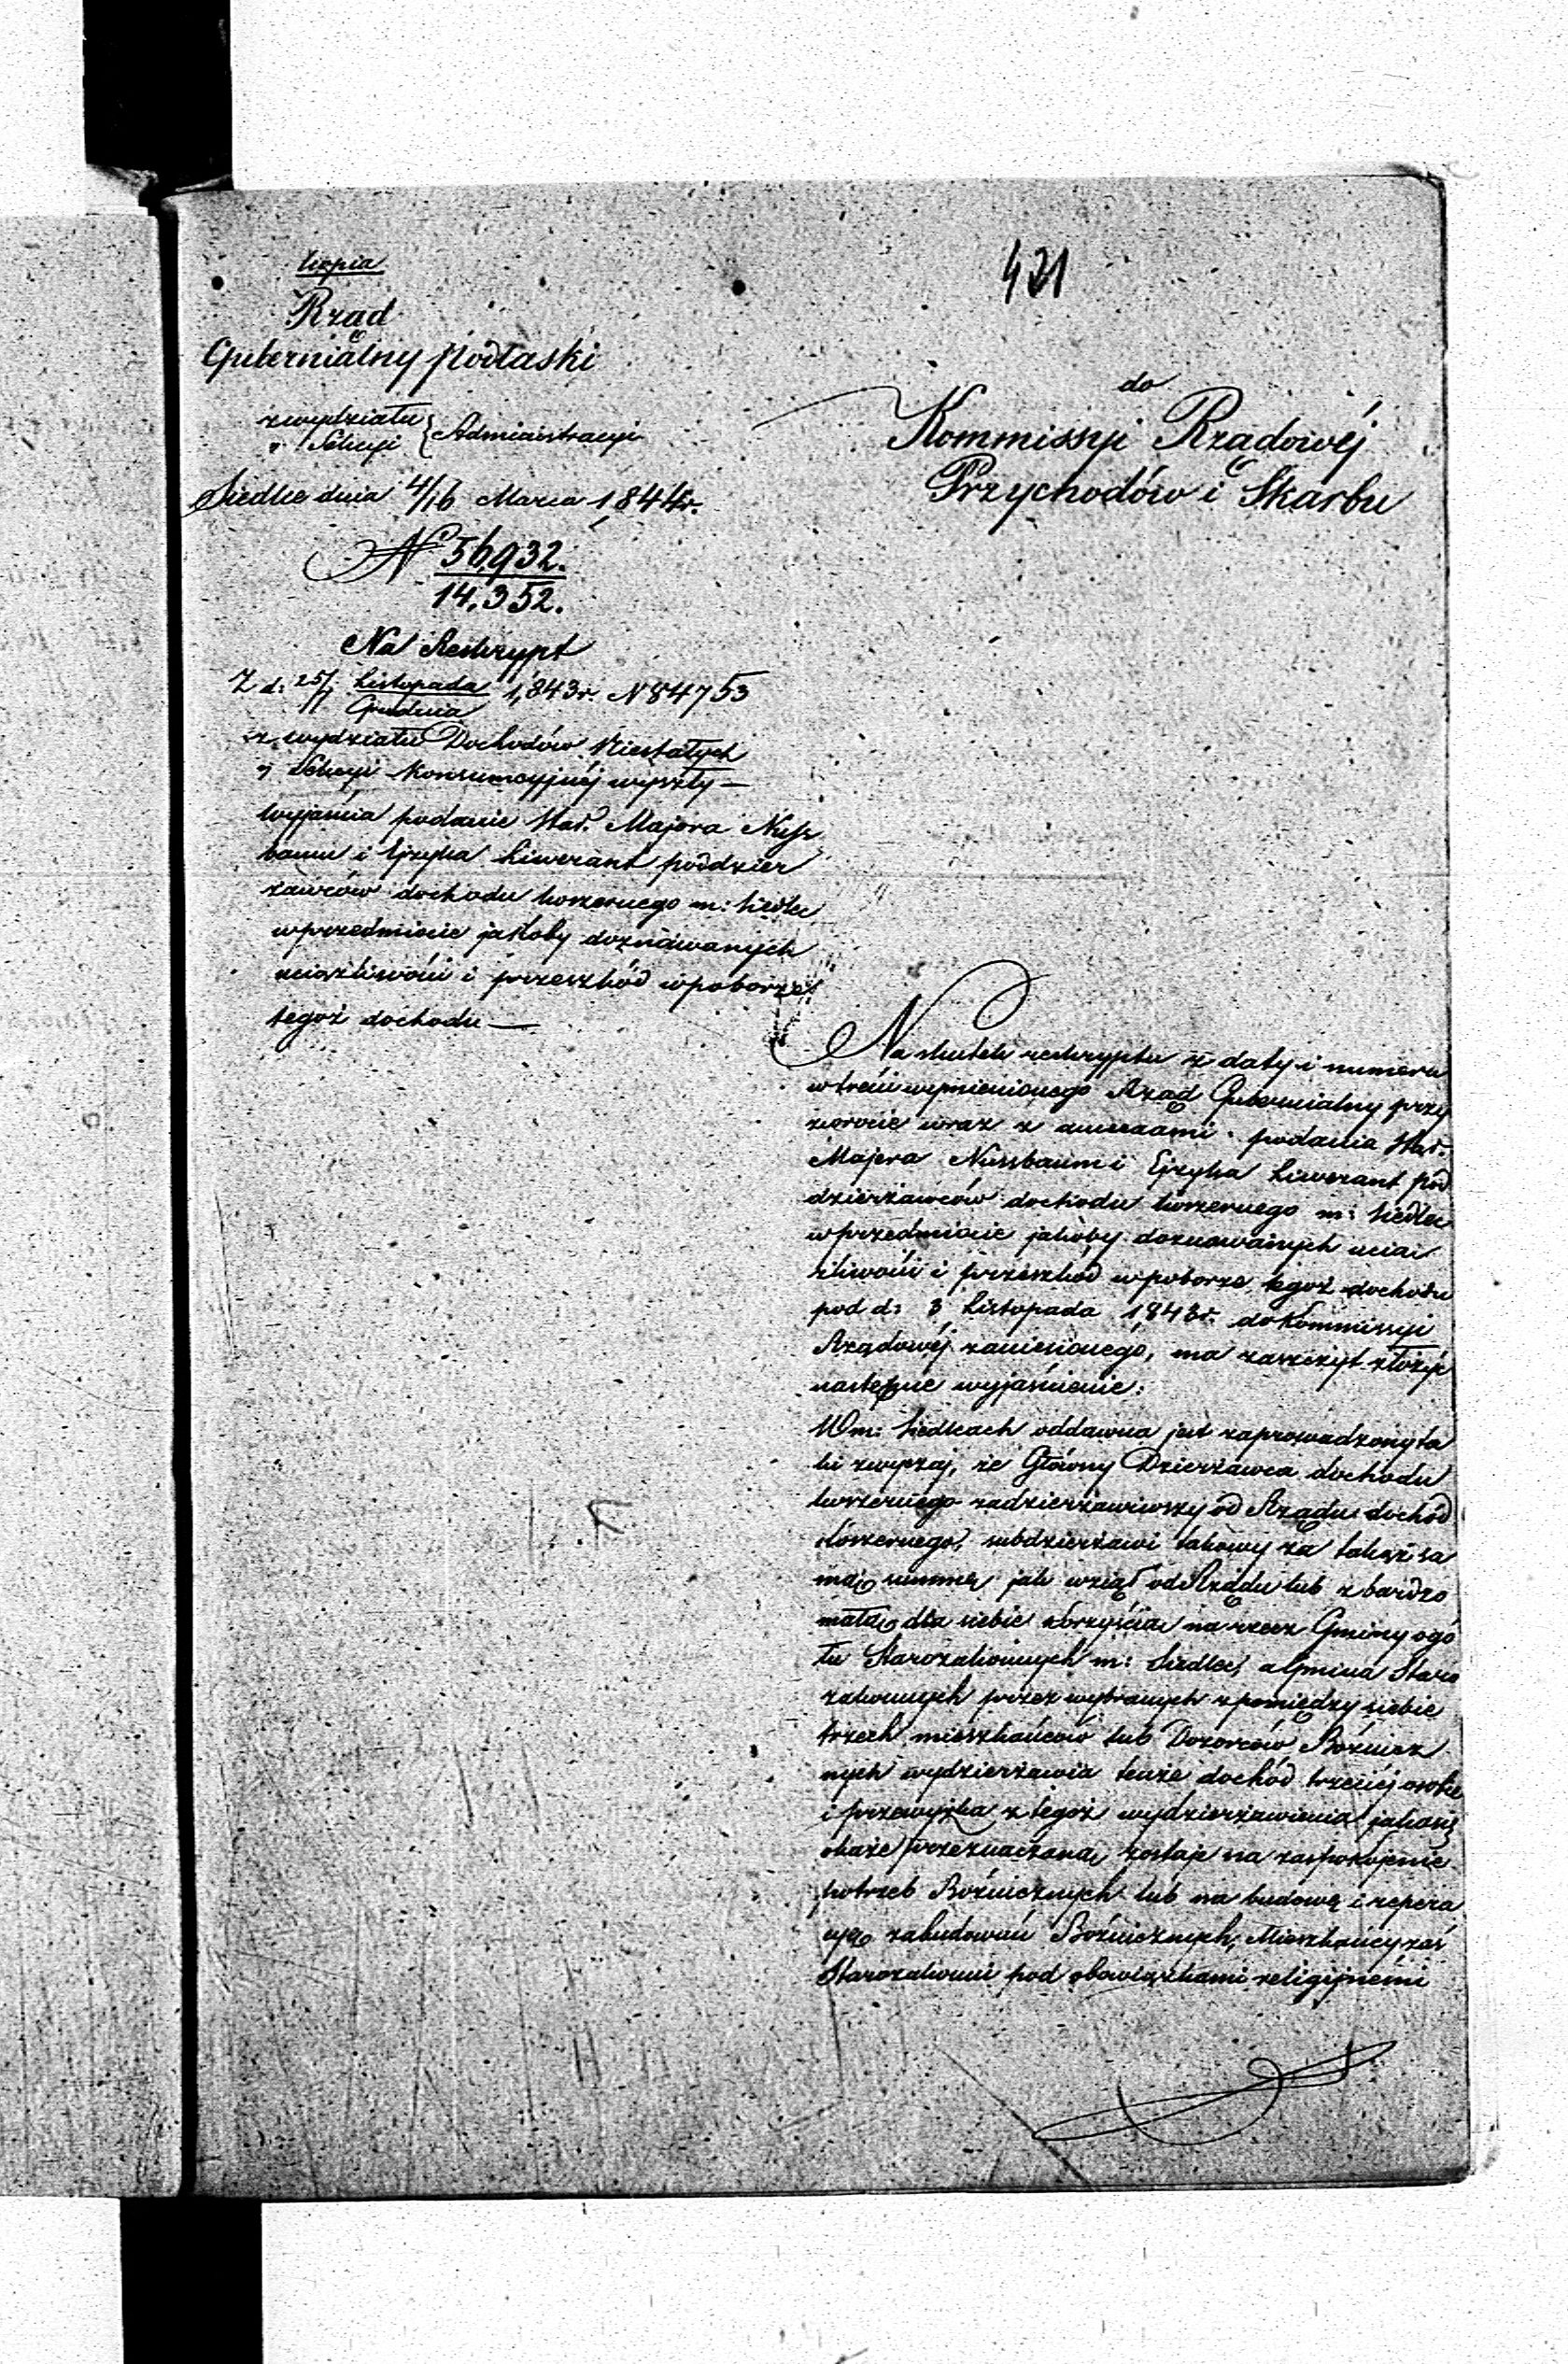 421
Kopia
Rząd
Gubernialny Podlaski
z wydziału } Administracyi
" Sekcyi
Siedlce dnia 4/16 Marca 1,844r.
N 56,932.
14,352.
Na Reskrypt
Z d: 25/ Listopada 1,843r. N 84753
Grudnia
z wydziału Dochodów Niestałych
" Sekcyi Konsumcyjnéj wyszły —
wyjaśnia podanie Star. Majora Nuss
baum i Ejzyka Liwerant poddzier
żawców dochodu koszernego m: Siedlec
w przedmiocie jakoby doznawanych
uciążliwości i przeszkód w poborze
tegoż dochodu —
do
Kommissyi Rządowéj
Przychodów i Skarbu
Na skutek reskryptu z daty i numeru
w treści wymienionego Rząd Gubernialny przy
zwrocie wraz z annexami podania Star.
Majera Nussbaum i Ejzyka Liwerant pod
dzierżawców dochodu koszernego m: Siedlec
w przedmiocie jakoby doznawanych uciąż
liwości i przeszkód w poborze tegoż dochodu
pod d: 3 Listopada 1,843r. do Kommissyi
Rządowéj zaniesionego, ma zaszczyt złożyć
następne wyjaśnienie:
W m: Siedlcach oddawna jest zaprowadzony ta
ki zwyczaj, że Główny Dzierżawca dochodu
koszernego zadzierżawiwszy od Rządu dochód
koszernego, subdzierżawi takowy za takąż sa
mą summę jak wziął od Rządu lub z bardzo
małą dla siebie korzyścią na rzecz Gminy ogó
łu Starozakonnych m: Siedlec, a Gmina Staro
zakonnych przez wybranych z pomiędzy siebie
trzech mieszkańców lub Dozorców Bóżnicz
nych wydzierżawia tenże dochód trzeciéj osobie
i przewyżka z tegoż wydzierżawienia jaka się
okaże przeznaczona, zostaje na zaspokojenie
potrzeb Bóżnicznych lub na budowę i repera
cyą zabudowań Bóżnicznych; Mieszkańcy zaś
Starozakonni pod obowiązkami religijnemi